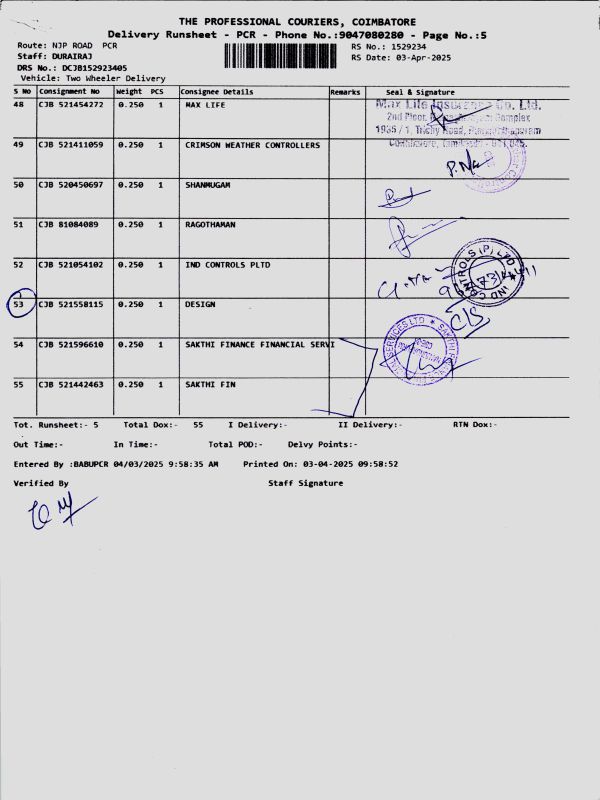 THE PROFESSIONAL COURIERS, COIMBATORE
Delivery Runsheet - PCR - Phone No.:9047080280 - Page No.:5
Route: NJP ROAD PCR
RS No.: 1529234
Staff: DURAIRAJ
RS Date: 03-Apr-2025
DRS No.: DCJB152923405
Vehicle: Two Wheeler Delivery
S No Consignment No Weight PCS Consignee Details Remarks Seal & Signature
48 CJB 521454272 0.250 1 MAX LIFE
Max Life Insurance Co. Ltd.
2nd Floor, Complex
1935 / 1, Trichy Road,
49 CJB 521411059 0.250 1 CRIMSON WEATHER CONTROLLERS
50 CJB 520450697 0.250 1 SHANMUGAM
51 CJB 81084089 0.250 1 RAGOTHAMAN
52 CJB 521054102 0.250 1 IND CONTROLS PLTD
IND CONTROLS (P) LTD
53 CJB 521558115 0.250 1 DESIGN
54 CJB 521596610 0.250 1 SAKTHI FINANCE FINANCIAL SERVI
55 CJB 521442463 0.250 1 SAKTHI FIN
Tot. Runsheet:- 5 Total Dox:- 55 I Delivery:- II Delivery:- RTN Dox:-
Out Time:- In Time:- Total POD:- Delvy Points:-
Entered By :BABUPCR 04/03/2025 9:58:35 AM Printed On: 03-04-2025 09:58:52
Verified By Staff Signature